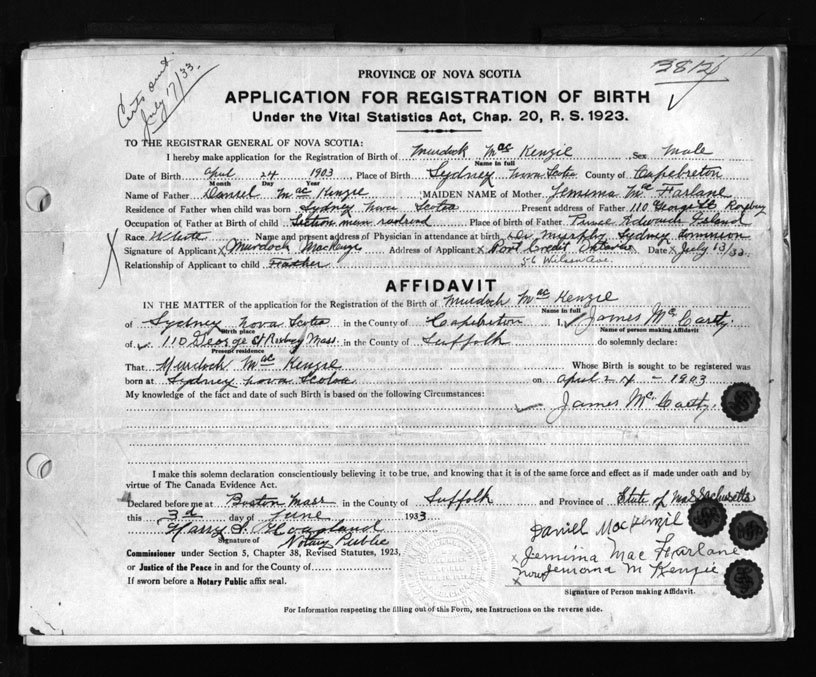 Certs out
July 17/33.
3812
PROVINCE OF NOVA SCOTIA
APPLICATION FOR REGISTRATION OF BIRTH
Under the Vital Statistics Act, Chap. 20, R. S. 1923.
TO THE REGISTRAR GENERAL OF NOVA SCOTIA:
I hereby make application for the Registration of Birth of Murdock Mac Kenzie Sex Male
Name in full
Date of Birth April 24 1903 Place of Birth Sydney Nova Scotia County of Capebreton
Month Day Year
Name of Father Daniel Mac Kenzie MAIDEN NAME of Mother Jemima Mc Farlane
Residence of Father when child was born Sydney Nova Scotia Present address of Father 110 George St Roxbury
Occupation of Father at Birth of child Section man railroad Place of birth of Father Prince Edwards Island
Race White Name and present address of Physician in attendance at birth Dr Murphy Sydney
Signature of Applicant x Murdoch MacKenzie Address of Applicant x Port Credit Ontario Date x July 13/33
Relationship of Applicant to child Father 56 Wilson Ave.
AFFIDAVIT
IN THE MATTER of the application for the Registration of the Birth of Murdoch Mac Kenzie
Name in full
of Sydney Nova Scotia in the County of Capebreton I, James Mc Carty
Birth place Name of person making Affidavit
of 110 George St Roxbury Mass in the County of Suffolk do solemnly declare:
Present residence
That Murdoch Mac Kenzie Whose Birth is sought to be registered was
born at Sydney Nova Scotia on April 24 - 1903
My knowledge of the fact and date of such Birth is based on the following Circumstances:
James Mc Carty.
I make this solemn declaration conscientiously believing it to be true, and knowing that it is of the same force and effect as if made under oath and by
virtue of The Canada Evidence Act.
Declared before me at Boston Mass in the County of Suffolk and Province of State of Massachusetts
this 3rd day of June 1933
Harry S. Hoagland
Signature of
Notary Public
Daniel MacKenzie
x Jemima Mac Farlane
Now Jemima M Kenzie
x
Commissioner under Section 5, Chapter 38, Revised Statutes, 1923,
or Justice of the Peace in and for the County of
If sworn before a Notary Public affix seal.
Signature of Person making Affidavit.
For Information respecting the filling out of this Form, see Instructions on the reverse side.